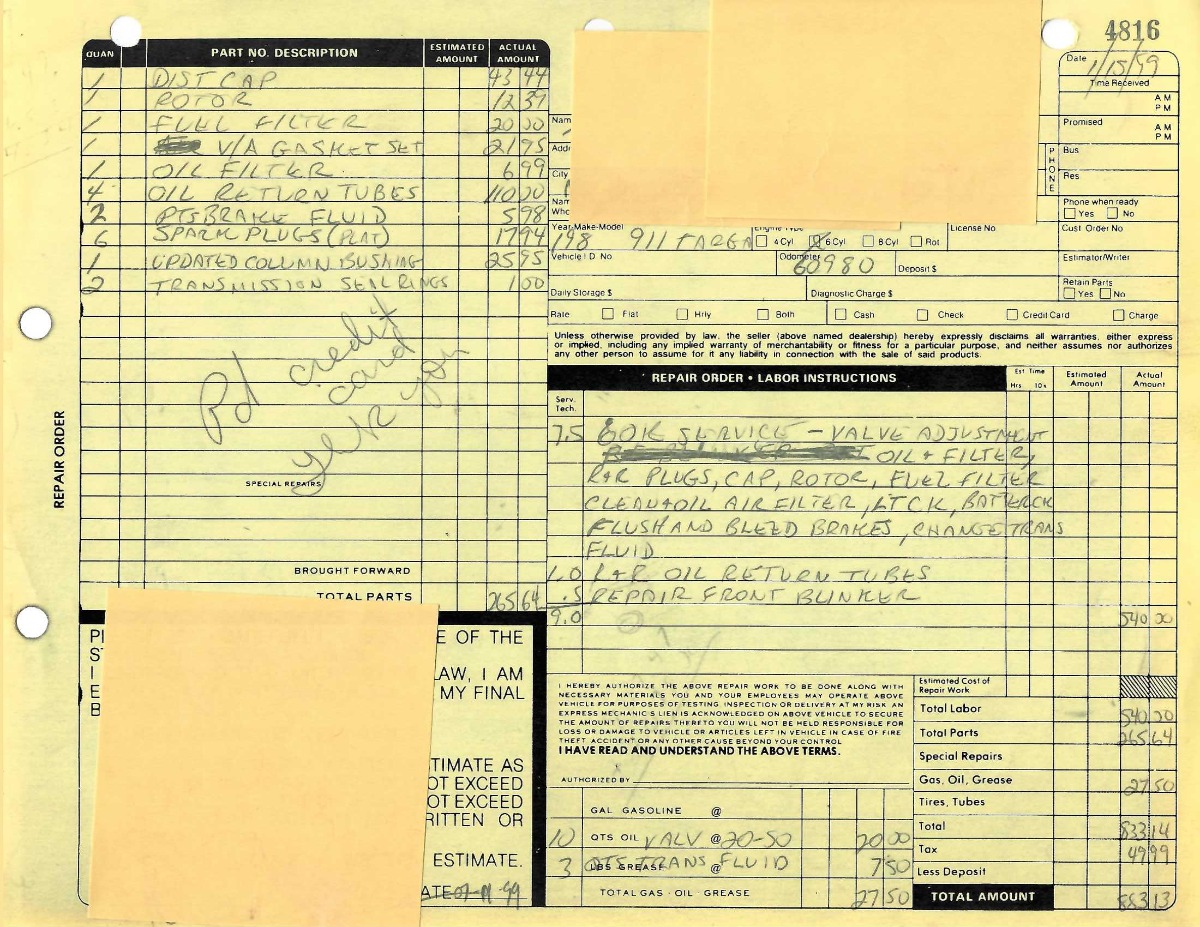 4816
QUAN PART NO. DESCRIPTION ESTIMATED AMOUNT ACTUAL AMOUNT
1 DIST CAP 43 44
1 ROTOR 12 39
1 FUEL FILTER 20 00
1 V/A GASKET SET 21 95
1 OIL FILTER 6 99
4 OIL RETURN TUBES 110 00
2 PTS BRAKE FLUID 5 98
6 SPARK PLUGS (PLAT) 17 94
1 UPDATED COLUMN BUSHING 25 95
2 TRANSMISSION SEAL RINGS 1 00
Pd credit card
SPECIAL REPAIRS
BROUGHT FORWARD
TOTAL PARTS 265 64
REPAIR ORDER
E OF THE
LAW, I AM
MY FINAL
TIMATE AS
OT EXCEED
OT EXCEED
RITTEN OR
ESTIMATE.
Date 1/15/99
Time Received
AM
PM
Promised
AM
PM
PHONE
Bus
Res
Phone when ready
Yes No
Year-Make-Model 911 TARGA
4 Cyl 6 Cyl 8 Cyl Rot
License No
Cust Order No
Vehicle I.D. No
Odometer 60980
Deposit $
Estimator/Writer
Daily Storage $
Diagnostic Charge $
Retain Parts
Yes No
Rate Flat Hrly Both Cash Check Credit Card Charge
Unless otherwise provided by law, the seller (above named dealership) hereby expressly disclaims all warranties, either express
or implied, including any implied warranty of merchantability or fitness for a particular purpose, and neither assumes nor authorizes
any other person to assume for it any liability in connection with the sale of said products.
REPAIR ORDER • LABOR INSTRUCTIONS Est Time Hrs 10's Estimated Amount Actual Amount
Serv. Tech.
7.5 60K SERVICE - VALVE ADJUSTMENT
OIL + FILTER,
R+R PLUGS, CAP, ROTOR, FUEL FILTER
CLEAN+OIL AIR FILTER, LTCK, BATTERCK
FLUSH AND BLEED BRAKES, CHANGE TRANS
FLUID
1.0 R+R OIL RETURN TUBES
.5 REPAIR FRONT BLINKER
9.0 540 00
I HEREBY AUTHORIZE THE ABOVE REPAIR WORK TO BE DONE ALONG WITH
NECESSARY MATERIALS YOU AND YOUR EMPLOYEES MAY OPERATE ABOVE
VEHICLE FOR PURPOSES OF TESTING INSPECTION OR DELIVERY AT MY RISK AN
EXPRESS MECHANIC'S LIEN IS ACKNOWLEDGED ON ABOVE VEHICLE TO SECURE
THE AMOUNT OF REPAIRS THERETO YOU WILL NOT BE HELD RESPONSIBLE FOR
LOSS OR DAMAGE TO VEHICLE OR ARTICLES LEFT IN VEHICLE IN CASE OF FIRE
THEFT ACCIDENT OR ANY OTHER CAUSE BEYOND YOUR CONTROL
I HAVE READ AND UNDERSTAND THE ABOVE TERMS.
AUTHORIZED BY
GAL GASOLINE @
10 QTS OIL VALV @ 20-50 20 00
3 LBS GREASE @ QTS TRANS FLUID 7 50
TOTAL GAS - OIL - GREASE 27 50
Estimated Cost of Repair Work
Total Labor 540 00
Total Parts 265 64
Special Repairs
Gas, Oil, Grease 27 50
Tires, Tubes
Total 833 14
Tax 49 99
Less Deposit
TOTAL AMOUNT 883 13